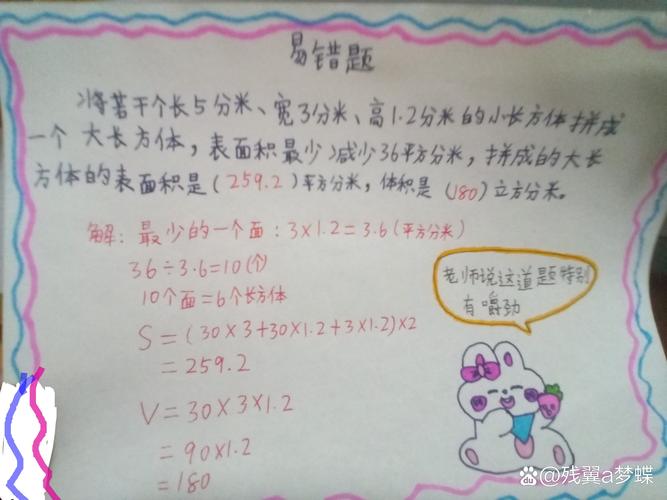 易错题
将若干个长5分米、宽3分米、高1.2分米的小长方体拼成
一个大长方体，表面积最少减少36平方分米，拼成的大长
方体的表面积是(259.2)平方分米，体积是(180)立方分米。
解：最少的一个面：3×1.2=3.6(平方分米)
36÷3.6=10(个)
10个面=6个长方体
S=(30×3+30×1.2+3×1.2)×2
=259.2
V=30×3×1.2
=90×1.2
=180
老师说这道题特别
有嚼劲
Baidu百科@残翼a梦蝶